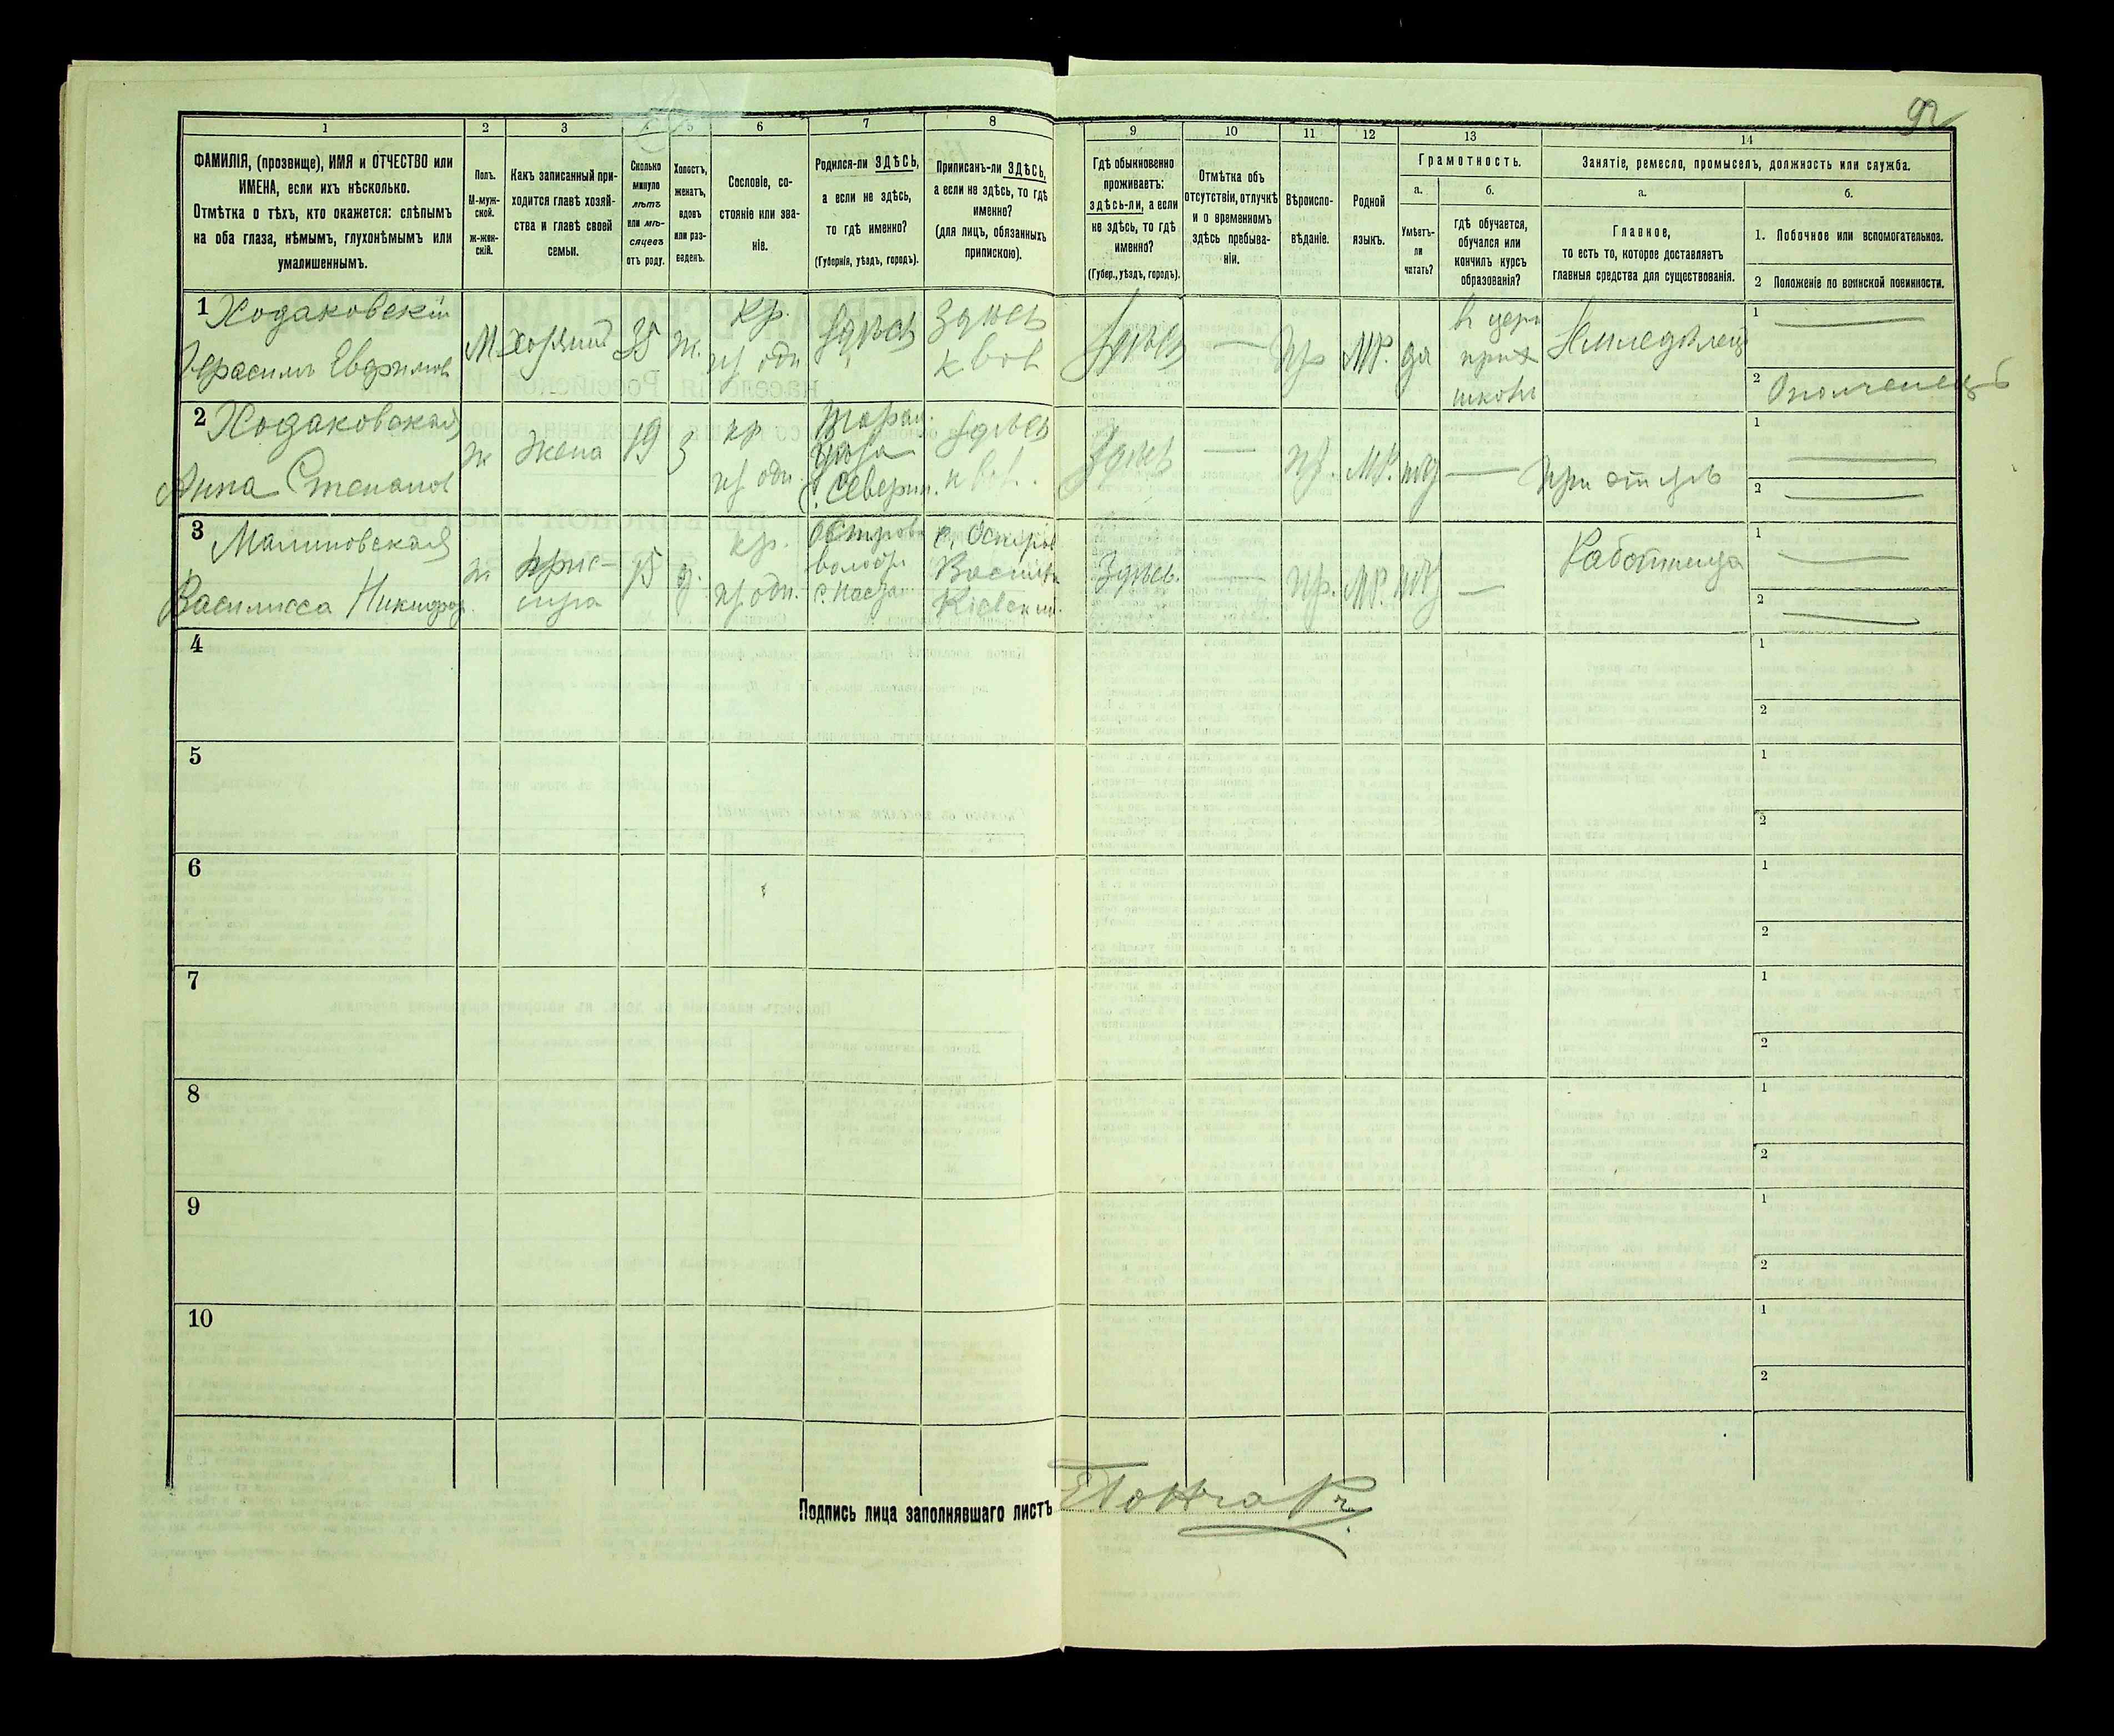 92
1
2
3
4
5
6
7
8
9
10
11
12
13
14
ФАМИЛІЯ, (прозвище), ИМЯ и ОТЧЕСТВО или
ИМЕНА, если ихъ нѣсколько.
Отмѣтка о тѣхъ, кто окажется: слѣпымъ
на оба глаза, нѣмымъ, глухонѣмымъ или
умалишеннымъ.
Полъ.
М-муж-
ской.
ж-жен-
скій.
Какъ записанный при-
ходится главѣ хозяй-
ства и главѣ своей
семьи.
Сколько
минуло
лѣтъ
или мѣ-
сяцевъ
отъ роду.
Холостъ,
женатъ,
вдовъ
или раз-
веденъ.
Сословіе, со-
стояніе или зва-
ніе.
Родился-ли ЗДѢСЬ,
а если не здѣсь,
то гдѣ именно?
(Губернія, уѣздъ, городъ).
Приписанъ-ли ЗДѢСЬ,
а если не здѣсь, то гдѣ
именно?
(для лицъ, обязанныхъ
припискою).
Гдѣ обыкновенно
проживаетъ:
здѣсь-ли, а если
не здѣсь, то гдѣ
именно?
(Губер., уѣздъ, городъ).
Отмѣтка объ
отсутствіи, отлучкѣ
и о временномъ
здѣсь пребыва-
ніи.
Вѣроиспо-
вѣданіе.
Родной
языкъ.
Грамотность.
а.
б.
Умѣетъ-
ли
читать?
гдѣ обучается,
обучался или
кончилъ курсъ
образованія?
Занятіе, ремесло, промыселъ, должность или служба.
а.
б.
Главное,
то есть то, которое доставляетъ
главныя средства для существованія.
1. Побочное или вспомогательное.
2 Положеніе по воинской повинности.
1 Ходаковскій
Герасимъ Евфимов
М
хозяинъ
35
ж.
кр.
из одн.
Здѣсь
здѣсь
Здѣсь
—
пр
МР.
да
в церк
прих
школѣ
Земледѣлецъ
1 —
2 Ополченецъ
2 Ходаковская
Анна Степанов
ж
жена
19
з
кр
из одн.
Таращ.
уѣзда
Здѣсь
Здѣсь
—
пр.
МР.
нѣт
—
При отцѣ
1 —
2 —
3 Малиновская
Василисса Никифор.
ж
15
д.
кр.
из одн.
волости
Кіевской
Здѣсь.
—
пр.
МР.
нѣт
—
Работница
1 —
2 —
4
1
2
5
1
2
6
1
2
7
1
2
8
1
2
9
1
2
10
1
2
Подпись лица заполнявшаго листъ